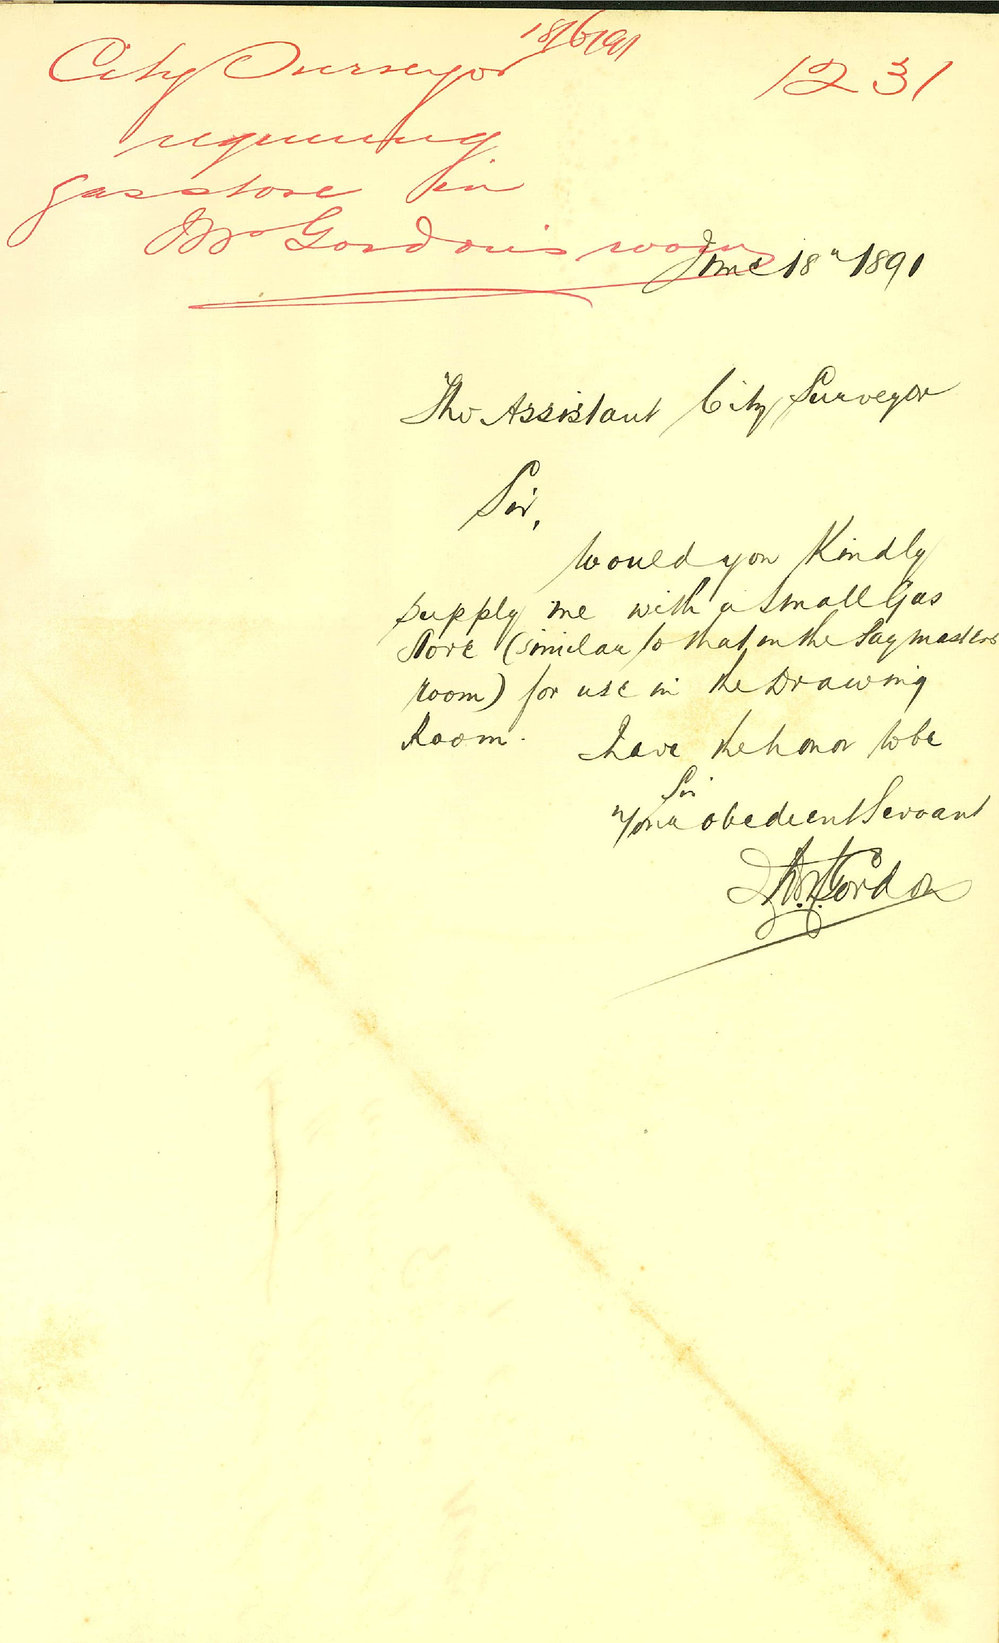 18/6/91
City Surveyor 1231
requiring
gas stove in
Mr Gordon's room
June 18th 1891
The Assistant City Surveyor
Sir,
Would you Kindly
supply me with a small Gas
Stove (similar to that in the Paymasters
room) for use in the Drawing
Room. I have the honor to be
Sir
Your obedient Servant
Gordon